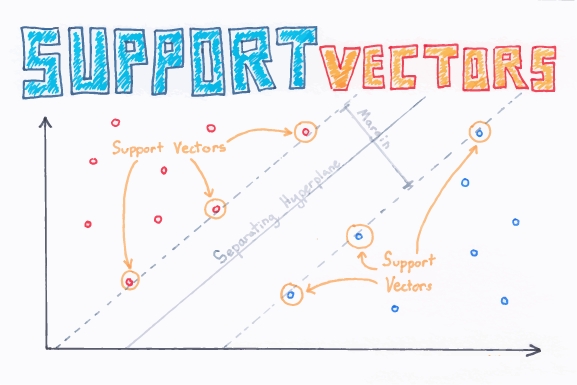 SUPPORT VECTORS
Support Vectors
Margin
Separating Hyperplane
Support
Vectors